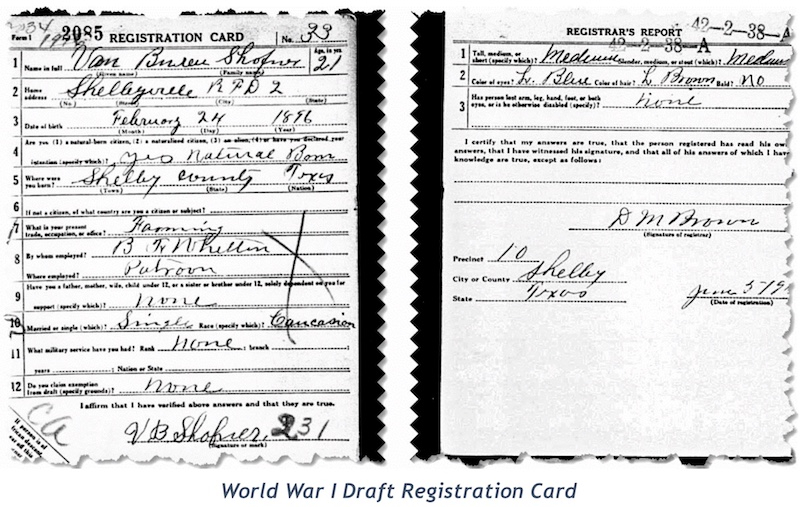 2085 REGISTRATION CARD No. 33
Form 1
Age, in yrs.
1 Name in full Van Buren Shofner 21
(Given name) (Family name)
2 Home address Shelbyville RFD 2
(No.) (Street) (City) (State)
3 Date of birth February 24 1896
(Month) (Day) (Year)
4 Are you (1) a natural-born citizen, (2) a naturalized citizen, (3) an alien, (4) or have you declared your
intention (specify which)? yes Natural Born
5 Where were you born? Shelby County Texas
(Town) (State) (Nation)
6 If not a citizen, of what country are you a citizen or subject?
7 What is your present trade, occupation, or office? Farming
8 By whom employed? B F
Where employed? Patroon
9 Have you a father, mother, wife, child under 12, or a sister or brother under 12, solely dependent on you for
support (specify which)? None
10 Married or single (which)? Single Race (specify which)? Caucasion
11 What military service have you had? Rank None ; branch ;
years ; Nation or State
12 Do you claim exemption from draft (specify grounds)? None
I affirm that I have verified above answers and that they are true.
V B Shofner 231
(Signature or mark)
If person is of
African descent,
REGISTRAR'S REPORT 42-2-38-A
42-2-38-A
1 Tall, medium, or short (specify which)? Medium Slender, medium, or stout (which)? Medium
2 Color of eyes? L. Blue Color of hair? L. Brown Bald? No
3 Has person lost arm, leg, hand, foot, or both
eyes, or is he otherwise disabled (specify)? None
I certify that my answers are true, that the person registered has read his own
answers, that I have witnessed his signature, and that all of his answers of which I have
knowledge are true, except as follows:
D M Brown
(Signature of registrar)
Precinct 10
City or County Shelby
State Texas June 5 191
(Date of registration)
World War I Draft Registration Card